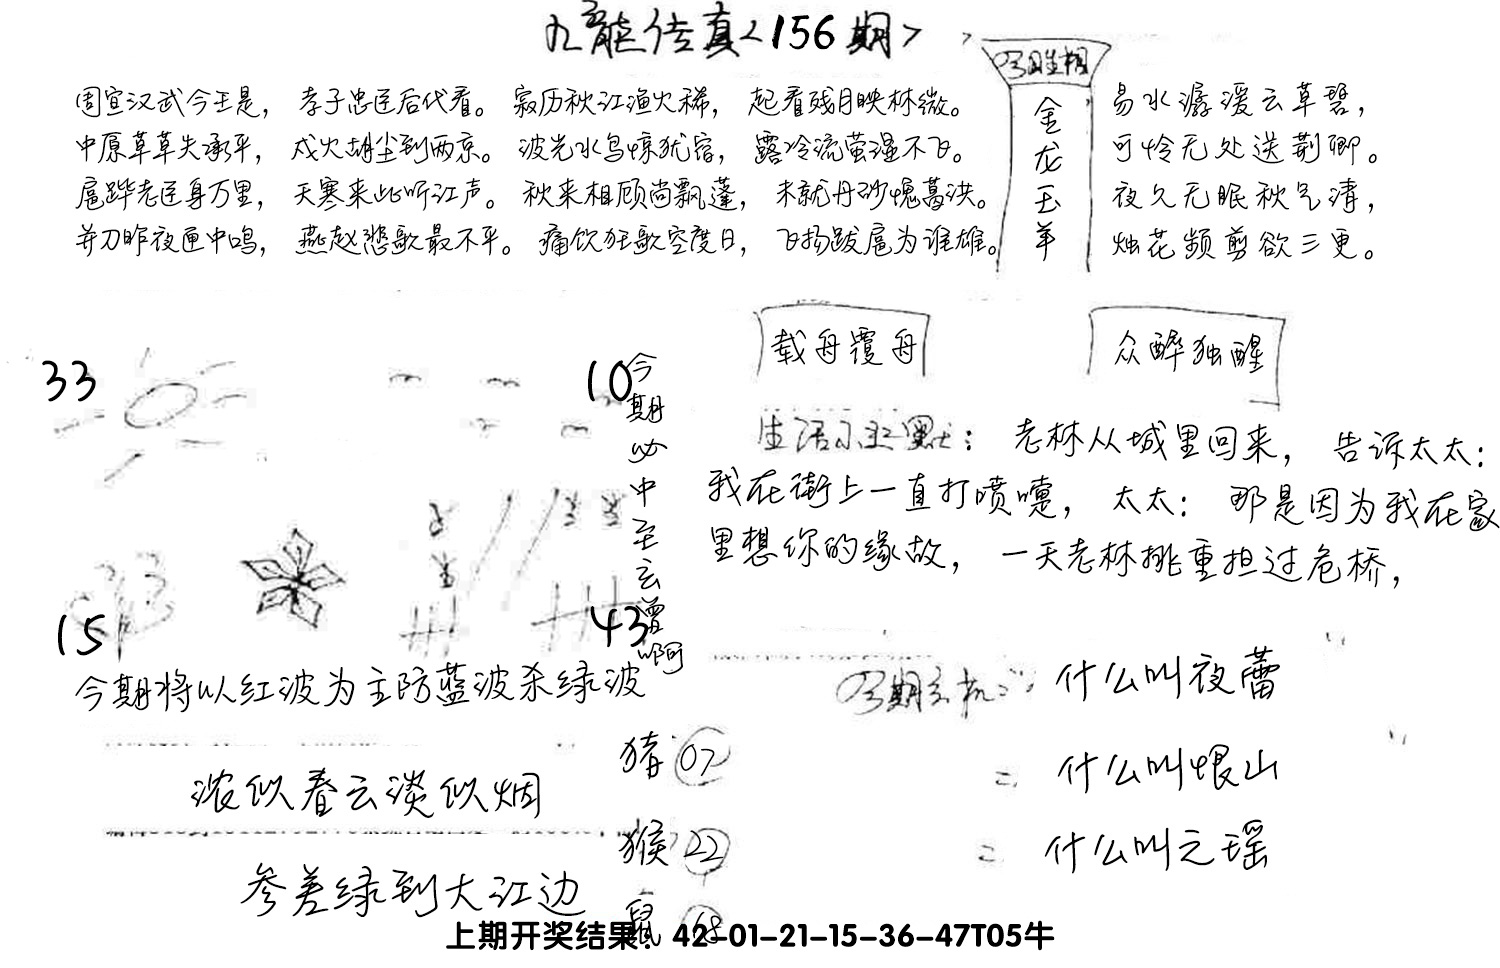 九龙传真<156期>
周宣汉武今王是， 孝子忠臣后代看。 寂历秋江渔火稀， 起看残月映林微。
中原草草失承平， 戍火胡尘到两京。 波光水鸟惊犹宿， 露冷流萤湿不飞。
扈跸老臣身万里， 天寒来此听江声。 秋来相顾尚飘蓬， 未就丹砂愧葛洪。
并刀昨夜匣中鸣， 燕赵悲歌最不平。 痛饮狂歌空度日， 飞扬跋扈为谁雄。
金龙玉羊
易水潺湲云草碧，
可怜无处送荆卿。
夜久无眠秋气清，
烛花频剪欲三更。
载舟覆舟
众醉独醒
33
10
15
43
今期必中至云曾啊
老林从城里回来， 告诉太太：
我在街上一直打喷嚏， 太太： 那是因为我在家
里想你的缘故， 一天老林挑重担过危桥，
今期将以红波为主防蓝波杀绿波
什么叫夜蕾
什么叫恨山
什么叫之瑶
浓似春云淡似烟
参差绿到大江边
猪 07
猴 22
鼠
上期开奖结果：42-01-21-15-36-47T05牛